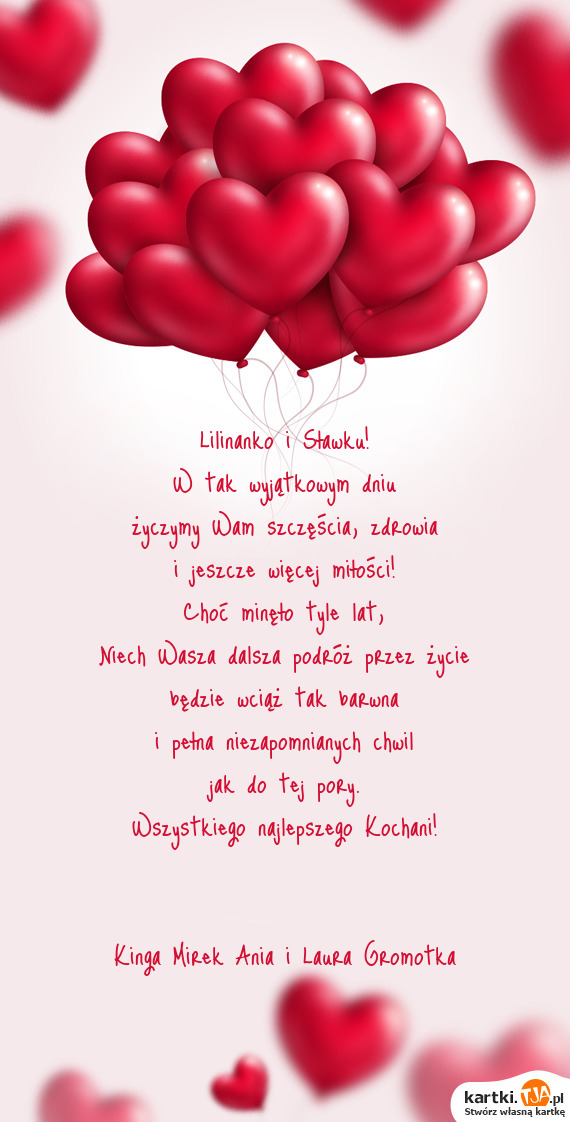 Lilinanko i Sławku!
W tak wyjątkowym dniu
życzymy Wam szczęścia, zdrowia
i jeszcze więcej miłości!
Choć minęło tyle lat,
Niech Wasza dalsza podróż przez życie
będzie wciąż tak barwna
i pełna niezapomnianych chwil
jak do tej pory.
Wszystkiego najlepszego Kochani!
Kinga Mirek Ania i Laura Gromotka
kartki.TJA.pl
Stwórz własną kartkę